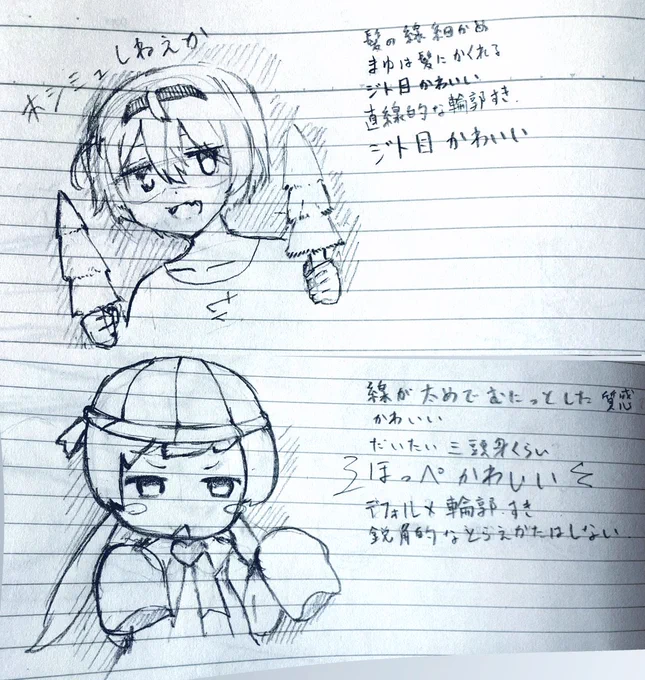 髪の線細かめ
まゆは髪にかくれる
ジト目かわいい
直線的な輪郭すき.
ジト目かわいい
線が太めでむにっとした質感
かわいい
だいたい三頭身くらい
ほっぺかわいい
デフォルメ輪郭.すき
鋭角的なとらえかたはしない.